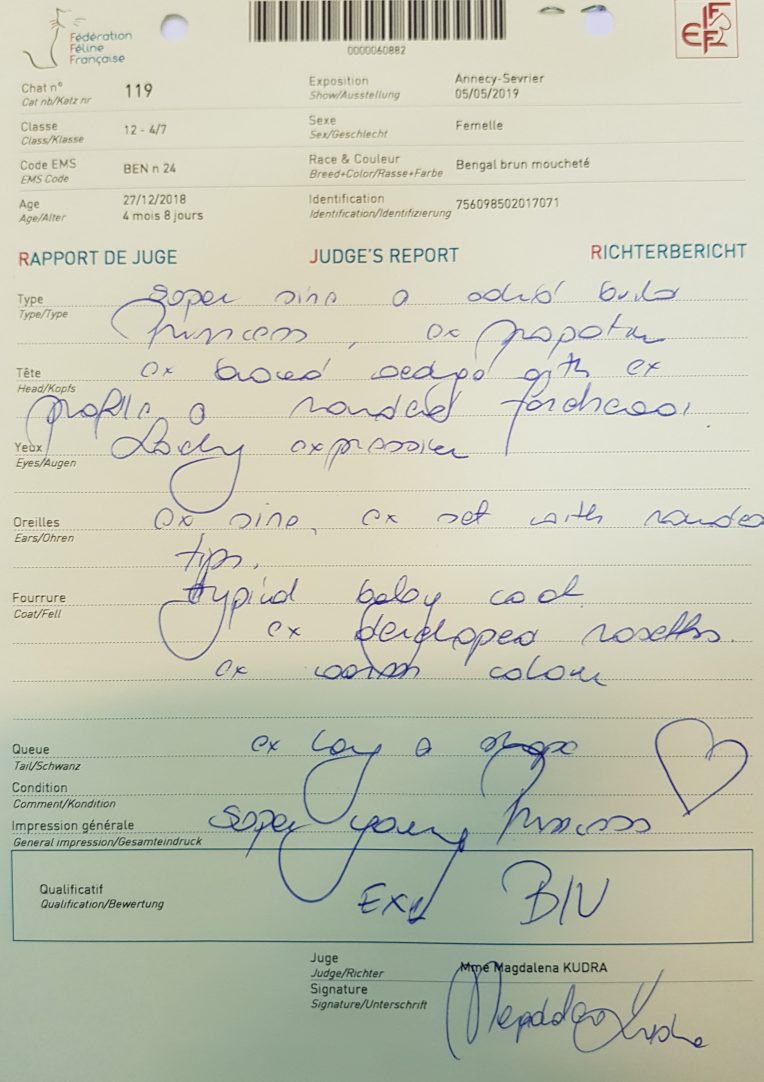 Fédération
Féline
Française
0000060882
FIFe
Chat n° 119 Exposition Annecy-Sevrier
Cat nb/Katz nr Show/Ausstellung 05/05/2019
Classe 12 - 4/7 Sexe Femelle
Class/Klasse Sex/Geschlecht
Code EMS BEN n 24 Race & Couleur Bengal brun moucheté
EMS Code Breed+Color/Rasse+Farbe
Age 27/12/2018 Identification 756098502017071
Age/Alter 4 mois 8 jours Identification/Identifizierung
RAPPORT DE JUGE JUDGE'S REPORT RICHTERBERICHT
Type super size
Type/Type princess, ex
Tête ex with ex
Head/Kopfs profile rounded forehead
Yeux Lovely expression
Eyes/Augen
Oreilles ex size, ex set with rounded
Ears/Ohren tips.
Fourrure typical baby coat
Coat/Fell ex developed rosettes.
ex warm colour
Queue ex shape
Tail/Schwanz
Condition
Comment/Kondition
Impression générale super young princess
General impression/Gesamteindruck
Qualificatif Ex1 BIV
Qualification/Bewertung
Juge Mme Magdalena KUDRA
Judge/Richter
Signature Magdalena Kudra
Signature/Unterschrift